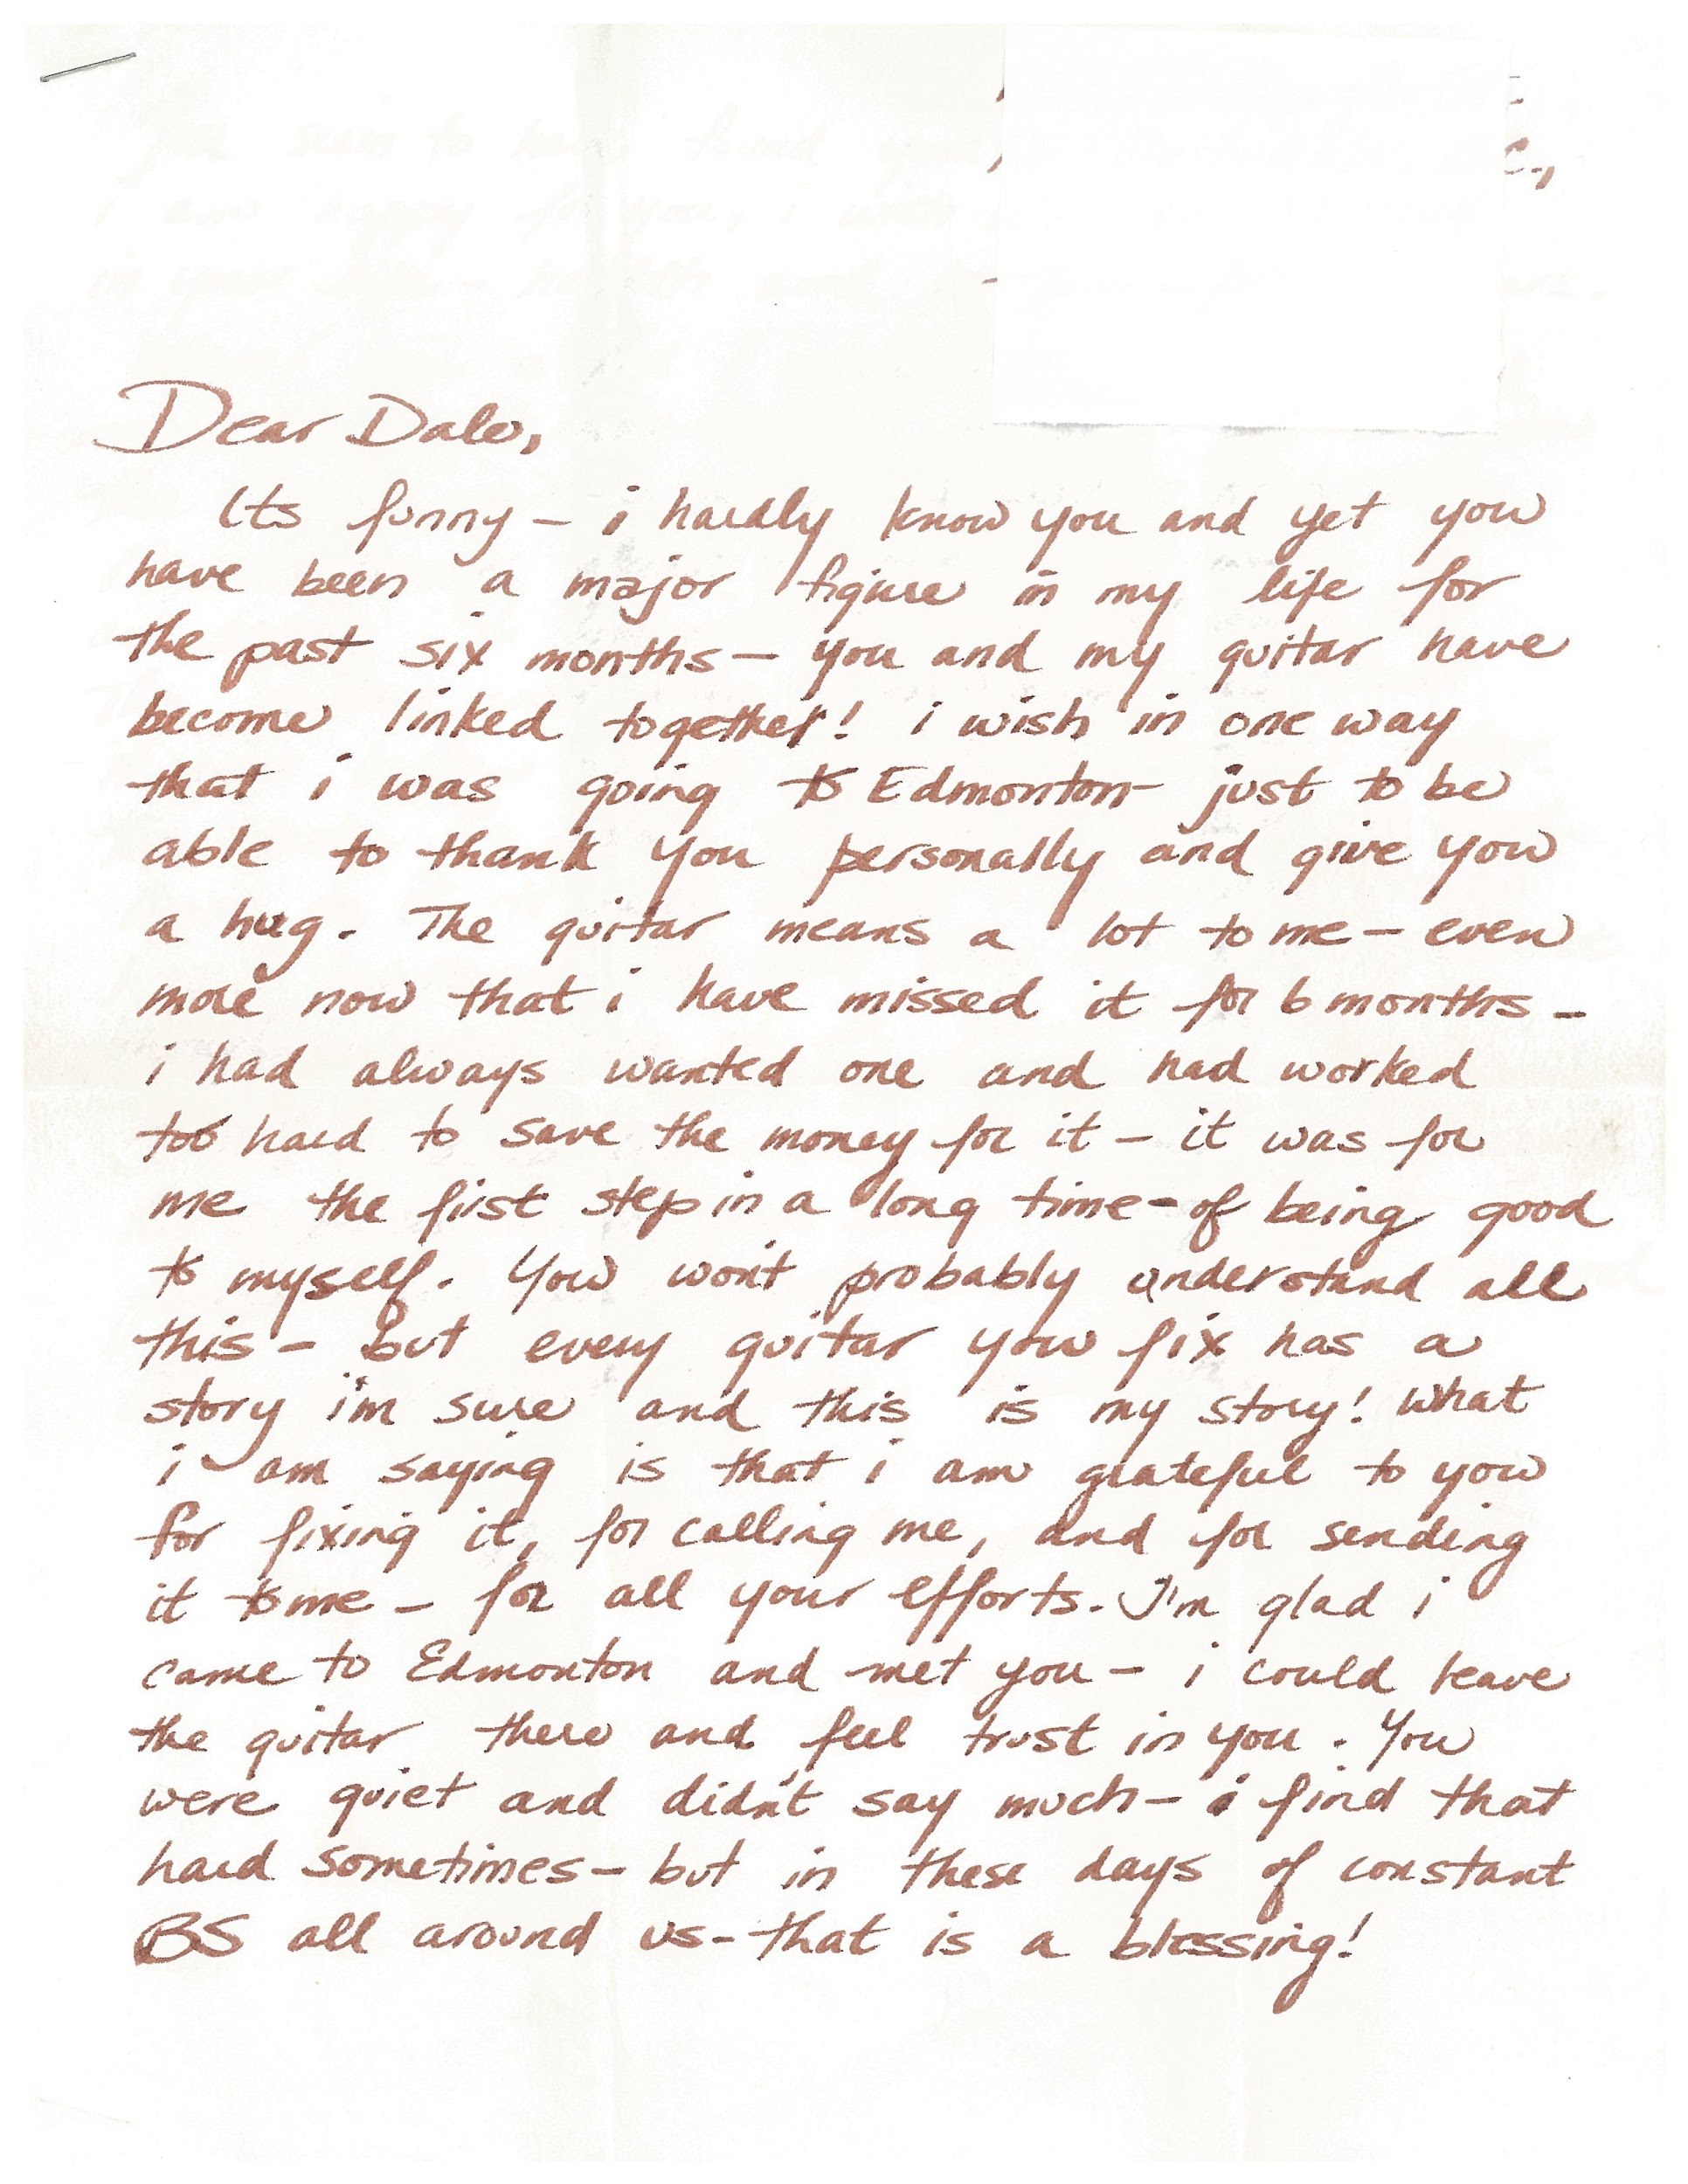 Dear Dale,
Its funny – i hardly know you and yet you
have been a major figure in my life for
the past six months – you and my guitar have
become linked together! i wish in one way
that i was going to Edmonton just to be
able to thank you personally and give you
a hug. The guitar means a lot to me – even
more now that i have missed it for 6 months –
i had always wanted one and had worked
too hard to save the money for it – it was for
me the first step in a long time – of being good
to myself. You won't probably understand all
this – but every guitar you fix has a
story i'm sure and this is my story! What
i am saying is that i am grateful to you
for fixing it, for calling me, and for sending
it to me – for all your efforts. I'm glad i
came to Edmonton and met you – i could leave
the guitar there and feel trust in you. You
were quiet and didn't say much – i find that
hard sometimes – but in these days of constant
BS all around us – that is a blessing!